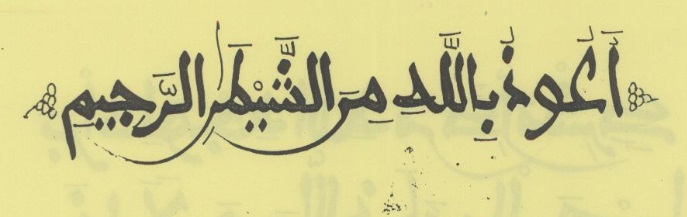 أَعُوذُ بِاللَّهِ مِنَ الشَّيْطَٰنِ الرَّجِيمِ